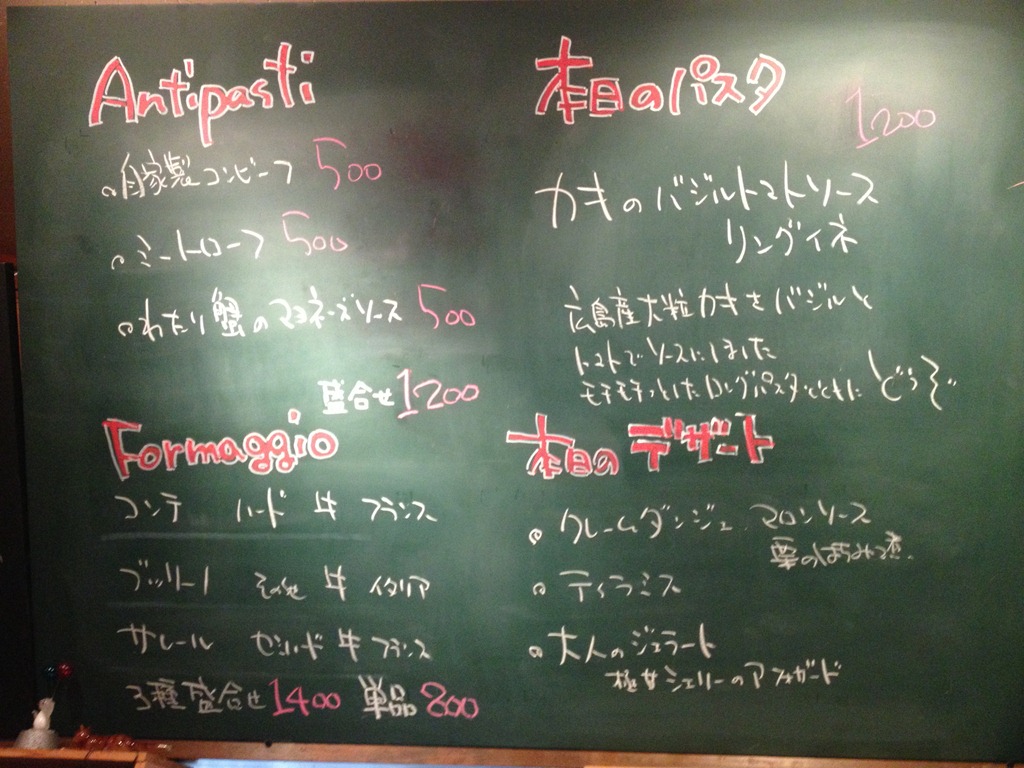 Antipasti
自家製コンビーフ 500
ミートローフ 500
わたり蟹のマヨネーズソース 500
盛合せ 1200
Formaggio
コンテ ハード 牛 フランス
ブッリーノ その他 牛 イタリア
サレール セミハード 牛 フランス
3種盛合せ 1400 単品 800
本日のパスタ
1200
カキのバジルトマトソース
リングイネ
広島産大粒カキをバジルと
トマトでソースにしました
モチモチっとしたロングパスタとともにどうぞ
本日のデザート
クレームダンジェ マロンソース
栗のはちみつ煮
ティラミス
大人のジェラート
極甘シェリーのアフォガード